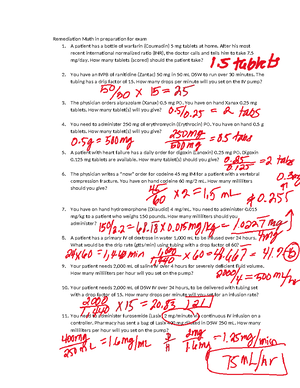 Remediation Math in preparation for exam
1. A patient has a bottle of warfarin (Coumadin) 5 mg tablets at home. After his most
recent international normalized ratio (INR), the doctor calls and tells him to take 7.5
mg/day. How many tablets (scored) should the patient take? 1.5 tablets
2. You have an IVPB of ranitidine (Zantac) 50 mg in 50 mL D5W to run over 30 minutes. The
tubing has a drip factor of 15. How many drops per minute will you set on the IV pump?
50/30 x 15 = 25
3. The physician orders alprazolam (Xanax) 0.5 mg PO. You have on hand Xanax 0.25 mg
tablets. How many tablet(s) will you give? 0.5/0.25 = 2 tabs
4. You need to administer 250 mg of erythromycin (Erythrocin) PO. You have on hand 0.5 g
tablets. How many tablet(s) will you give? 250mg/500mg = 0.5 tabs
0.5g = 500mg
5. A patient with heart failure has a daily order for digoxin (Lanoxin) 0.25 mg PO. Digoxin
0.125 mg tablets are available. How many tablet(s) should you give? 0.25/0.125 = 2 tabs
6. The physician writes a "now" order for codeine 45 mg IM for a patient with a vertebral
compression fracture. You have on hand codeine 60 mg/2 mL. How many milliliters
should you give? 45/60 x 2 = 1.5 mL
7. You have on hand hydromorphone (Dilaudid) 4 mg/mL. You need to administer 0.015
mg/kg to a patient who weighs 150 pounds. How many milliliters should you
administer? 150/2.2 =
8. A patient has a primary IV of dextrose in water 1,000 mL to be infused over 24 hours.
What would be the drip rate (gtts/min) using tubing with a drop factor of 60?
24x60 = 1,440 min x 60 = 41.667 = 41.9
9. Your patient needs 2,000 mL of saline IV over 4 hours for severely deficient fluid volume.
How many milliliters per hour will you set on the pump? 2000/4 = 500 mL/hr
10. Your patient needs 2,000 mL of D5W IV over 24 hours, to be delivered with tubing set
with a drop factor of 15. How many drops per minute will you set for an infusion rate?
2000/1440 x 15 = 20.83 (21)
11. You need to administer furosemide (Lasix) 2 mg/minute via continuous IV infusion on a
controller. Pharmacy has sent a bag of Lasix 400 mg mixed in D5W 250 mL. How many
milliliters per hour will you set on the pump?
400mg/250mL = 1.6mg/mL 2mg/1.6mg = 1.25mg/min
75 mL/hr